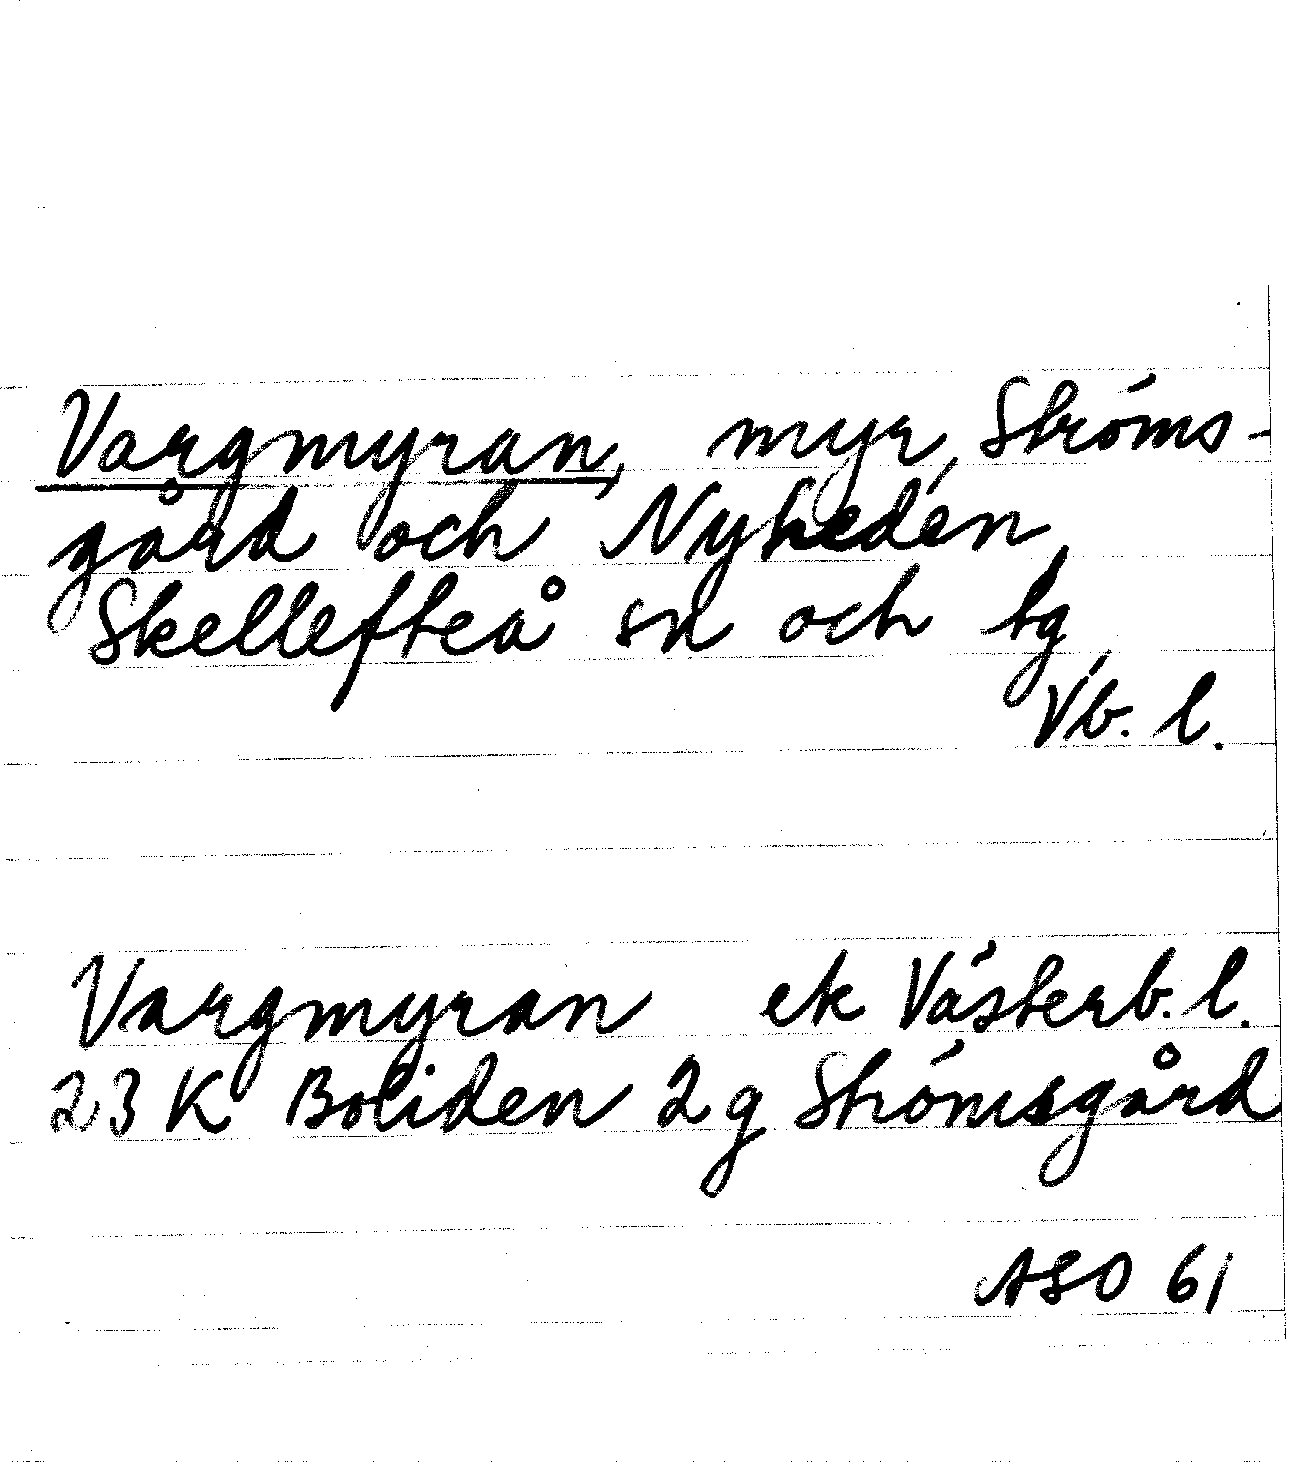 Vargmyran, myr, Ströms-
gård och Nyheden,
Skellefteå sn och tg,
Vb. l.
Vargmyran ek Västerb. l.
23 K Boliden 2 g Strömsgård
ASO 61